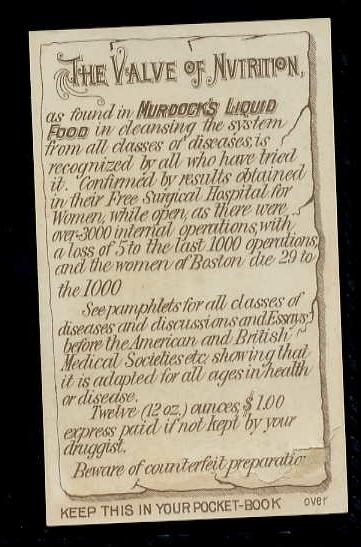 THE VALUE OF NUTRITION,
as found in MURDOCK'S LIQUID
FOOD in cleansing the system
from all classes of diseases, is
recognized by all who have tried
it. Confirmed by results obtained
in their Free Surgical Hospital for
Women, while open, as there were
over 3000 internal operations, with
a loss of 5 to the last 1000 operations,
and the women of Boston die 29 to
the 1000
See pamphlets for all classes of
diseases and discussions and Essays
before the American and British
Medical Societies etc, showing that
it is adapted for all ages in health
or disease.
Twelve (12 oz.) ounces, $1.00
express paid if not kept by your
druggist.
Beware of counterfeit preparatio
KEEP THIS IN YOUR POCKET-BOOK over